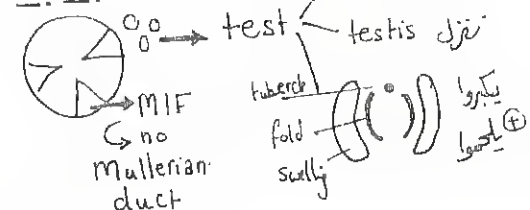 test.
testis تنزل
MIF
no
Mullerian
duct
tubercle
fold
swellig
يكبروا
+
يلحموا